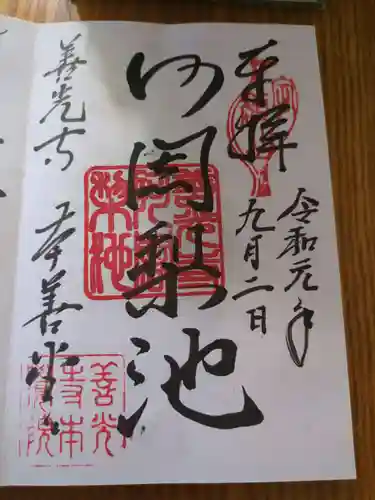 奉拝
令和元年
九月二日
阿闍梨池
善光寺 本善堂
善光
寺本
覺院